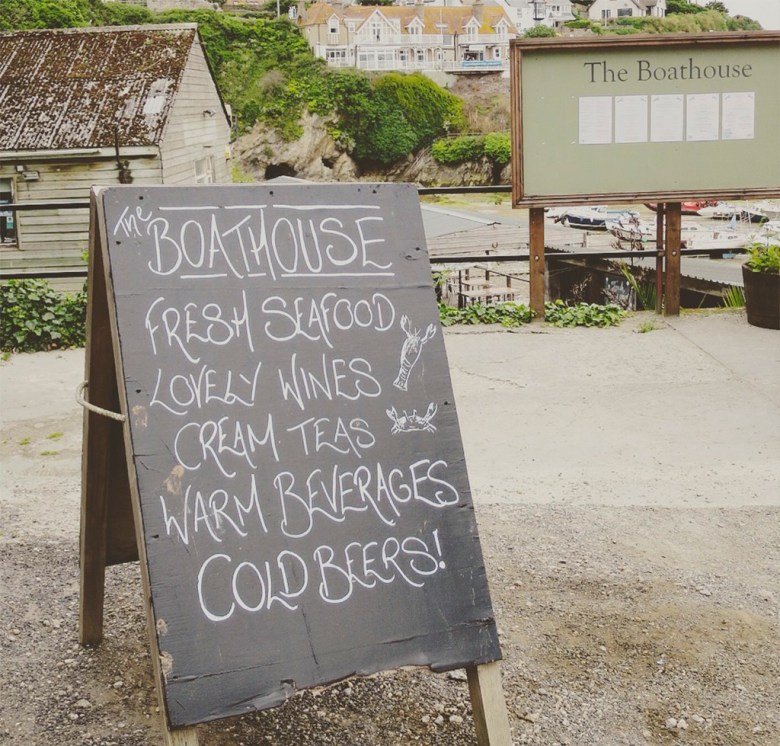 The
BOATHOUSE
FRESH SEAFOOD
LOVELY WINES
CREAM TEAS
WARM BEVERAGES
COLD BEERS!
The Boathouse